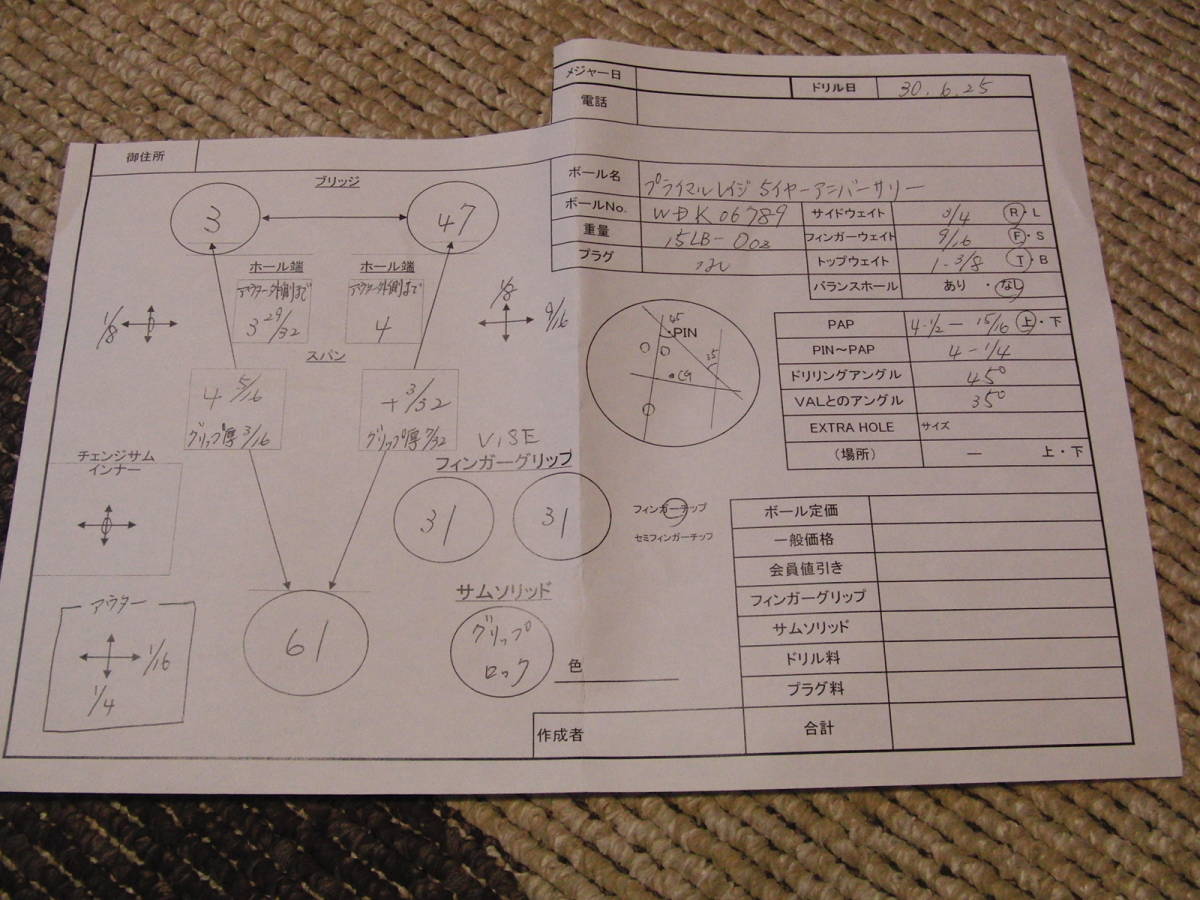 メジャー日
ドリル日 30.6.25
電話
御住所
ブリッジ
3
47
ホール端
アウター外側まで
3 29/32
ホール端
アウター外側まで
4
1/8
1/8
9/16
スパン
4 5/16
グリップ厚 3/16
+3/32
グリップ厚 7/32
チェンジサム
インナー
VISE
フィンガーグリップ
31
31
フィンガーチップ
セミフィンガーチップ
アウター
1/16
1/4
61
サムソリッド
グリップ
ロック
色
ボール名 プライマルレイジ5イヤーアニバーサリー
ボールNo. WDK06789
重量 15LB-0oz
プラグ なし
サイドウェイト 3/4 R・L
フィンガーウェイト 9/16 F・S
トップウェイト 1-3/8 T・B
バランスホール あり・なし
45
PIN
35
CG
PAP 4-1/2 - 15/16 上・下
PIN〜PAP 4-1/4
ドリリングアングル 45°
VALとのアングル 35°
EXTRA HOLE サイズ
(場所) ー 上・下
ボール定価
一般価格
会員値引き
フィンガーグリップ
サムソリッド
ドリル料
プラグ料
作成者
合計